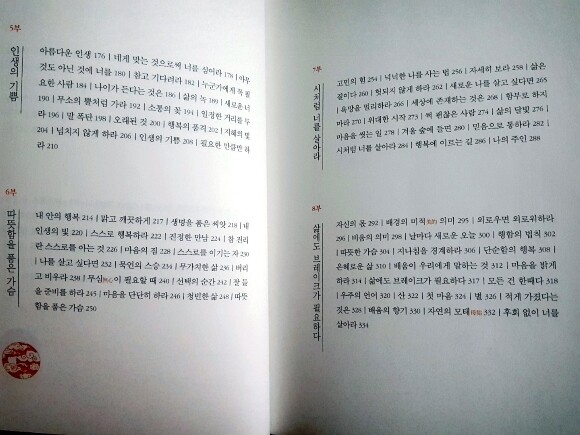 5부
인생의 기쁨
아름다운 인생 176 | 네게 맞는 것으로써 너를 심어라 178 | 아무
것도 아닌 것에 너를 180 | 참고 기다려라 182 | 누군가에게 꼭 필
요한 사람 184 | 나이가 든다는 것은 186 | 삶의 녹 189 | 새로운 너
190 | 무소의 뿔처럼 가라 192 | 소통의 꽃 194 | 일정한 거리를 두
라 196 | 말 폭탄 198 | 오래된 것 200 | 행복의 품격 202 | 지혜의 빛
204 | 넘치지 않게 하라 206 | 인생의 기쁨 208 | 필요한 만큼만 하
라 210
6부
따뜻함을 품은 가슴
내 안의 행복 214 | 맑고 깨끗하게 217 | 생명을 품은 씨앗 218 | 내
인생의 빛 220 | 스스로 행복하라 222 | 진정한 만남 224 | 참 진리
란 스스로를 아는 것 226 | 마음의 짐 228 | 스스로를 이기는 자 230
| 나를 살고 싶다면 232 | 묵언의 스승 234 | 무가치한 삶 236 | 버리
고 비우라 238 | 무심이 필요할 때 240 | 선택의 순간 242 | 잘 들
을 준비를 하라 244 | 마음을 단단히 하라 246 | 청빈한 삶 248 | 따뜻
함을 품은 가슴 250
7부
시처럼 너를 살아라
고민의 힘 254 | 넉넉한 나를 사는 법 256 | 자세히 보라 258 | 삶은
질이다 260 | 헛되지 않게 하라 262 | 새로운 나를 살고 싶다면 265
| 욕망을 멀리하라 266 | 세상에 존재하는 것은 268 | 함부로 하지
마라 270 | 위대한 시작 273 | 썩 괜찮은 사람 274 | 삶의 달빛 276 |
마음을 씻는 일 278 | 겨울 숲에 들면 280 | 믿음으로 통하라 282 |
시처럼 너를 살아라 284 | 행복에 이르는 길 286 | 나의 주인 288
8부
삶에도 브레이크가 필요하다
자신의 몫 292 | 배경의 미적 의미 295 | 외로우면 외로워하라
296 | 비움의 의미 298 | 날마다 새로운 오늘 300 | 행함의 법칙 302
| 따뜻한 가슴 304 | 지나침을 경계하라 306 | 단순함의 행복 308 |
은혜로운 삶 310 | 배움이 우리에게 말하는 것 312 | 마음을 밝게
하라 314 | 삶에도 브레이크가 필요하다 317 | 모든 건 한때다 318
| 우주의 언어 320 | 산 322 | 첫 마음 324 | 별 326 | 적게 가졌다는
것은 328 | 배움의 향기 330 | 자연의 모태 332 | 후회 없이 너를
살아라 334